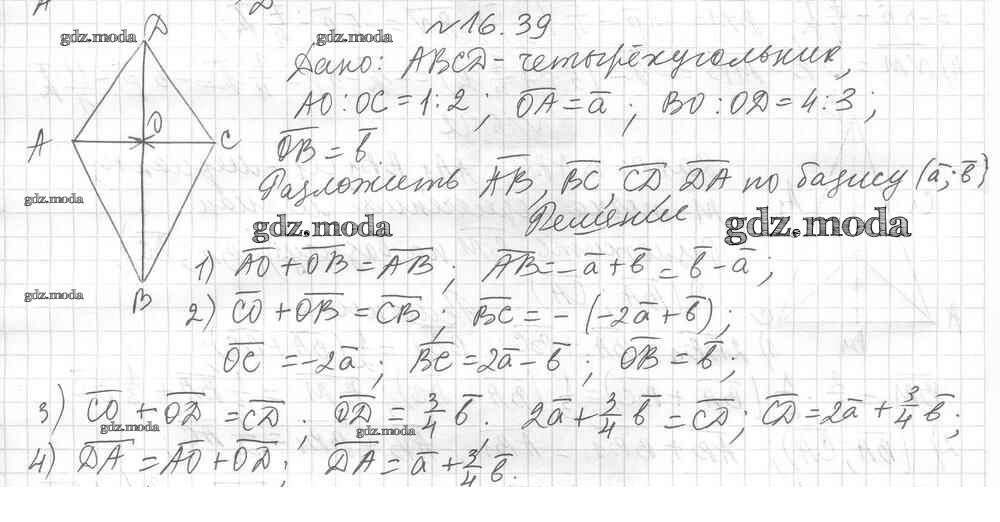 А D
gdz.moda gdz.moda
D
№16.39
Дано: ABCD - четырёхугольник,
AO:OC=1:2; OA=a̅; BO:OD=4:3;
O
A C
O̅B̅=b̅.
Разложить A̅B̅, B̅C̅, C̅D̅, D̅A̅ по базису (a̅; b̅)
gdz.moda
Решение
gdz.moda gdz.moda
1) A̅O̅+O̅B̅=A̅B̅; A̅B̅=-a̅+b̅=b̅-a̅;
gdz.moda
B
2) C̅O̅+O̅B̅=C̅B̅; B̅C̅=-(-2a̅+b̅);
O̅C̅=-2a̅; B̅C̅=2a̅-b̅; O̅B̅=b̅;
3) C̅O̅+O̅D̅=C̅D̅; O̅D̅=3/4 b̅. 2a̅+3/4 b̅=C̅D̅; C̅D̅=2a̅+3/4 b̅;
gdz.moda gdz.moda
4) D̅A̅=A̅O̅+O̅D̅; D̅A̅=a̅+3/4 b̅.